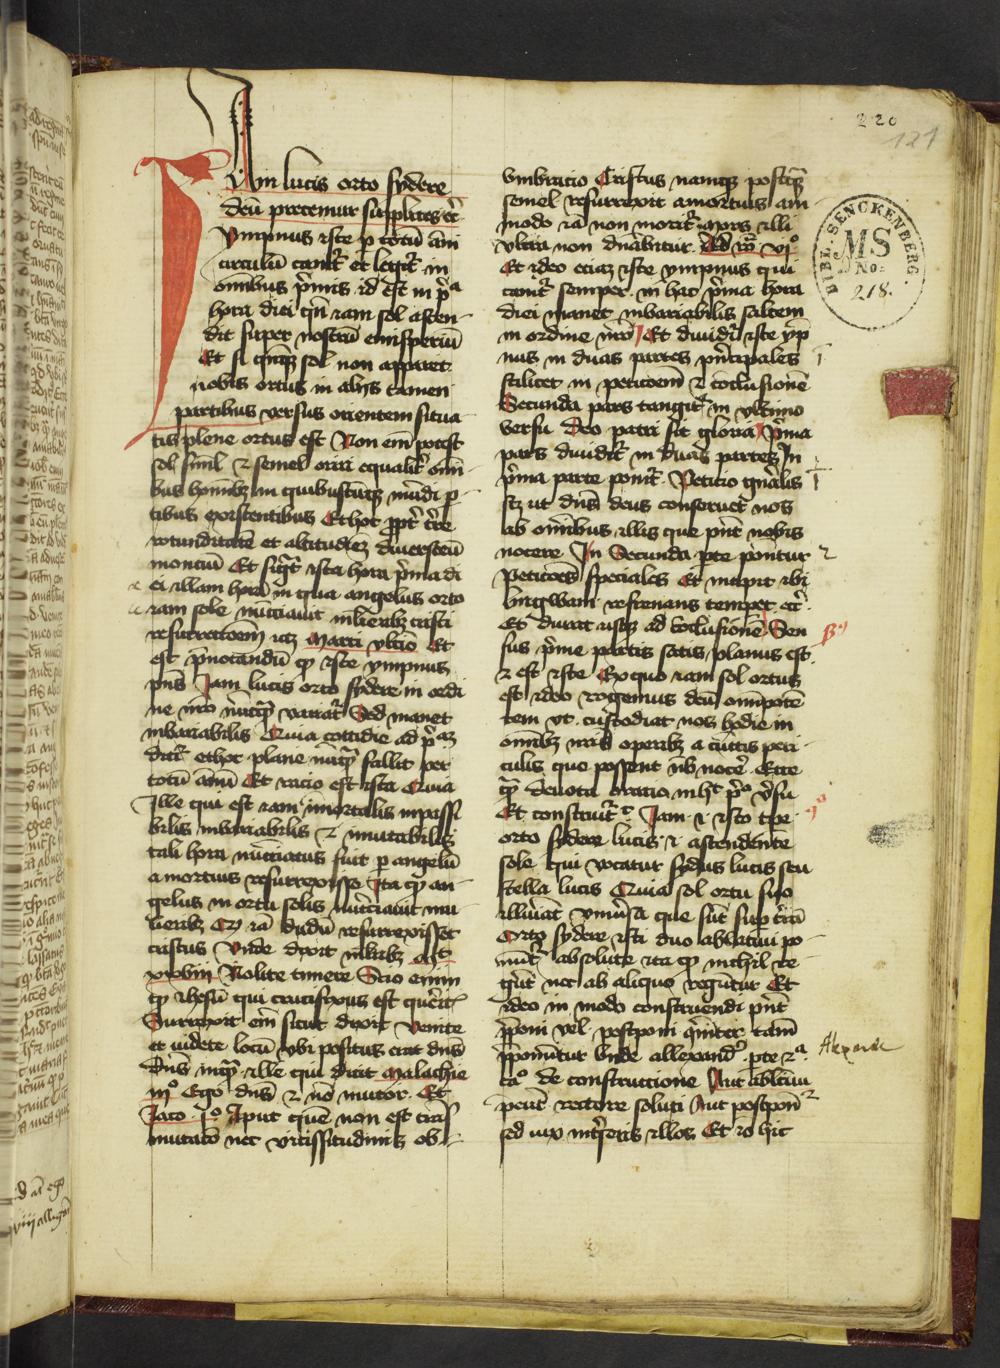 220
121
BIBL. SENCKENBERG.
MS
No:
218.
Iam lucis orto sydere
deū precemur supplices ec̄
Ympnus iste p totū ānū
circulū canit̄ et legit̄ in
omnibus p̄mis id est in p̄a
hora diei qn̄ iam sol ascen-
dit super nostrū emisperiū
Et si qn̄qz sol non apparet
nobis ortus in alijs tamen
partibus versus orientem situa
tis plene ortus est Non em̄ potest
sol simul z semel oriri equalit̄ om̄i
bus hominibz in quibuscūqz mūdi p
tibus existentibus Et hoc ppt̄ t̄re
rotunditatē et altitudiez diversitatū
montiū Et sigt̄ ista hora p̄ma di
ei illam horā in qua angelus orto
iam sole nūciauit mulieribz cristi
resurrectōem vt Marci vltīo Et
est p̄notandū qp iste ympnus
pn̄s Iam lucis orto sydere in ordi
ne nr̄o nūqz variat̄ Sed manet
invariabilis Quia cottidie ad p̄az
dicit̄ et hoc plane nūqz fallit per
totū annū Et racio est ista Quia
Ille qui est iam īmortalis inpassi
bilis invariabilis z īmutabilis
tali hora nūciatus fuit p angelū
a mortuis resurrexisse Ita qp an-
gelus in ortu solis nūciauit mu
lieribz qp iā dudū resurrexisset
cristus Vnde dixit mulieribz
xxviii Nolite timere Scio enim
qp ihesū qui crucifixus est querit̄
Surrexit em̄ sicut dixit Venite
et videte locū vbi positus erat dn̄s
Dn̄s inqz ille qui dicit Malachie
iiiº Ego dn̄s z nō mutor Et
Iaco. pº. Aput quē non est trās
mutatō nec vicissitudinis ob-
vmbratio Cristus namqz postqz
semel resurrexit a mortuis am
modo iā non morit̄ mors illi
vltra non dn̄abitur. Ad Ro vjº
Et ideo eciaz iste ympnus qui
canit̄ semper in hac p̄ma hora
diei manet invariabilis saltem
in ordine nr̄o Et dividit̄ iste ymp
nus in duas partes p̄ncipales
scilicet in peticōem z cōclusionē
Secunda pars tangit̄ in vltimo
versu Deo patri sit gloria P̄ma
pars dividit̄ in duas partes In
p̄ma parte ponit̄ Peticio gn̄alis
scz ut dn̄s deus conseruet nos
ab om̄ibus illis que pn̄t nobis
nocere In Secunda pte ponitur
Peticōes speciales Et incipit ibi
Lingwam refrenans temperet ec̄.
Et durat vsqz ad cōclusionē Sen
sus p̄me partis satis planus est.
z est iste Ex quo iam sol ortus
est ideo rogemus deū om̄ipotē
tem vt custodiat nos hodie in
om̄ibz nr̄is operibz a cūctis peri-
culis que possent nob̄ nocē
deuota oratio in hᵒ pº v̄su
Et construit̄ Iam i isto tpe
orto sydere lucis i ascendente
sole qui vocatur sydus lucis seu
stella lucis Quia sol ortu suo
illuīat vniūsa que sūt sup t̄ra
Orto sydere isti duo ablatiui po-
nūt̄ absolute ita qp nichil re-
gūt nec ab aliquo regūtur Et
ideo in modo construendi pn̄t
p̄poni vel postponi tam̄
p̄ponūtur Vnde allexand̄ pte 2ª
caº de construccione Aut ablatiui
petit rectore soluti Aut postponi
sed vix illos Et iō hic
Alexander